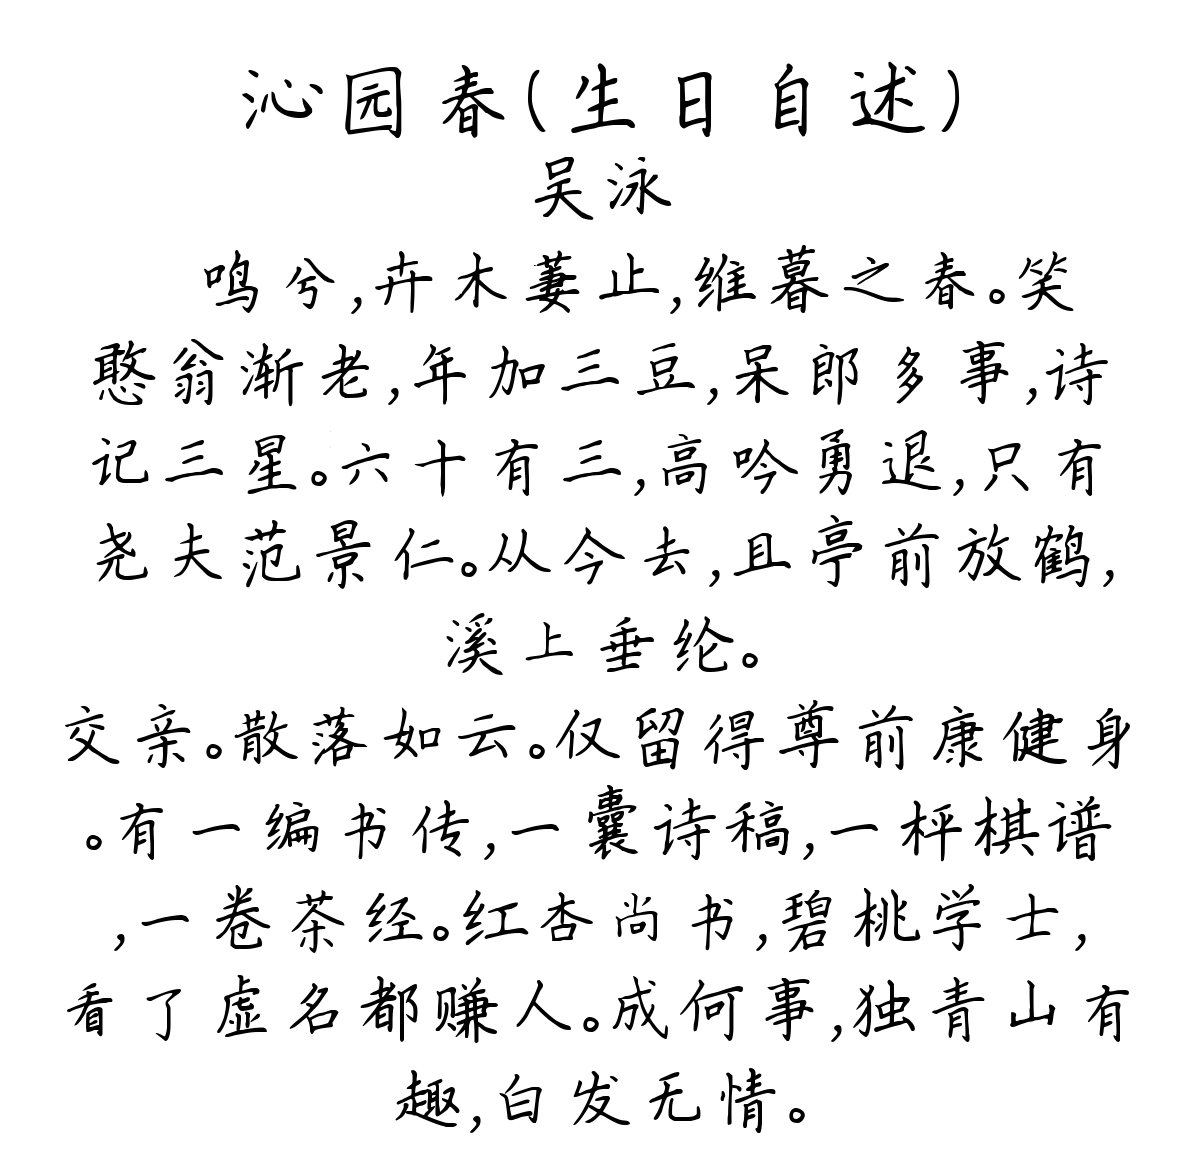 沁园春(生日自述)
吴泳
鸣兮,卉木萋止,维暮之春。笑
憨翁渐老,年加三豆,呆郎多事,诗
记三星。六十有三,高吟勇退,只有
尧夫范景仁。从今去,且亭前放鹤,
溪上垂纶。
交亲。散落如云。仅留得尊前康健身
。有一编书传,一囊诗稿,一枰棋谱
,一卷茶经。红杏尚书,碧桃学士,
看了虚名都赚人。成何事,独青山有
趣,白发无情。